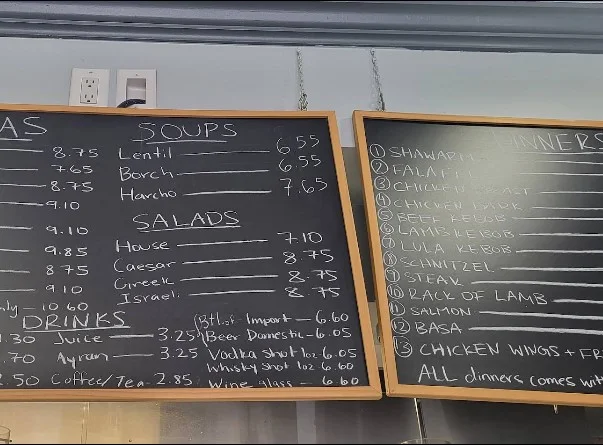 AS
8.75
7.65
8.75
9.10
9.10
9.85
8 75
9 10
nly - 10 60
SOUPS
Lentil 6.55
Borch 6.55
Harcho 7.65
SALADS
House 7.10
Caesar 8.75
Greek 8.75
Israeli 8.75
DRINKS
.30 Juice 3.25
.70 Ayran 3.25
.50 Coffee/Tea - 2.85
Import - 6.60
Beer Domestic - 6.05
Vodka shot 1oz - 6.05
Whisky shot 1oz - 6.60
Wine glass - 6.60
INNERS
① SHAWAR
② FALAF
③ CHICKEN
④ CHICKEN
⑤ BEEF KEBOB
⑥ LAMB KEBOB
⑦ LULA KEBOB
⑧ SCHNITZEL
⑨ STEAK
⑩ RACK OF LAMB
⑪ SALMON
⑫ BASA
⑬ CHICKEN WINGS + FR
ALL dinners comes wit